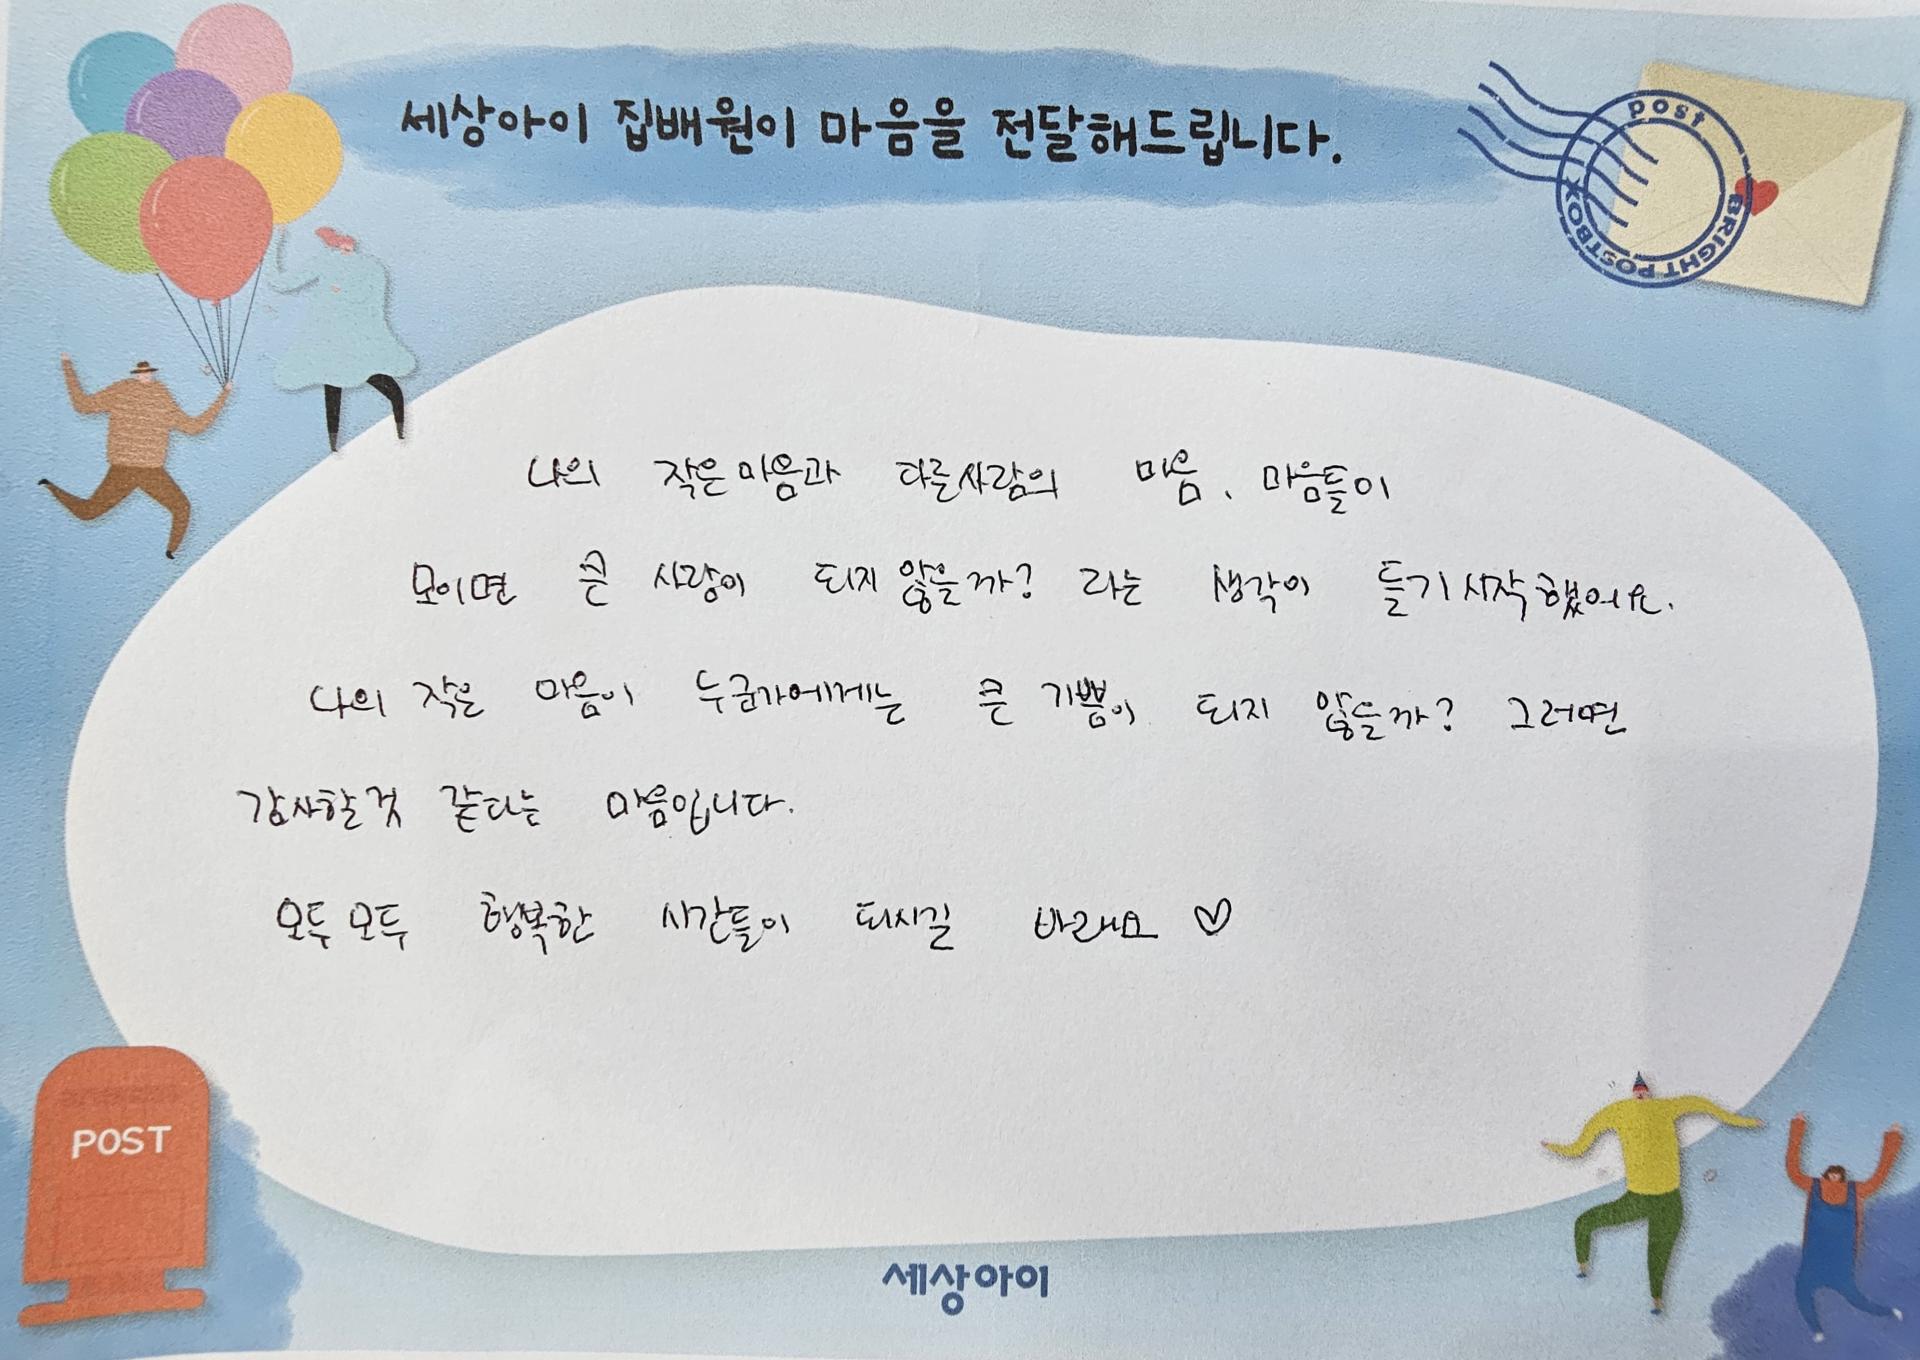 세상아이 집배원이 마음을 전달해드립니다.
post
BRIGHT POSTBOX
나의 작은 마음과 다른사람의 마음, 마음들이
모이면 큰 사랑이 되지 않을까? 라는 생각이 들기 시작했어요.
나의 작은 마음이 누군가에게는 큰 기쁨이 되지 않을까? 그러면
감사할것 같다는 마음입니다.
모두모두 행복한 시간들이 되시길 바래요 ♡
POST
세상아이